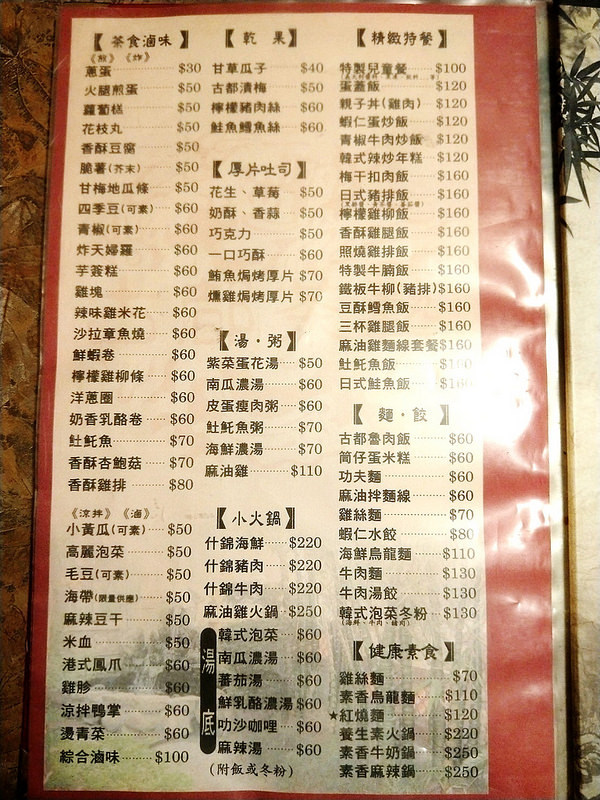 【茶食滷味】
《煎》《炸》
蔥蛋 $30
火腿煎蛋 $50
蘿蔔糕 $50
花枝丸 $50
香酥豆腐 $50
脆薯(芥末) $50
甘梅地瓜條 $50
四季豆(可素) $60
青椒(可素) $60
炸天婦羅 $60
芋簽糕 $60
雞塊 $60
辣味雞米花 $60
沙拉章魚燒 $60
鮮蝦卷 $60
檸檬雞柳條 $60
洋蔥圈 $60
奶香乳酪卷 $60
𩵚魠魚 $70
香酥杏鮑菇 $70
香酥雞排 $80
《涼拌》《滷》
小黃瓜(可素) $50
高麗泡菜 $50
毛豆(可素) $50
海帶(限量供應) $50
麻辣豆干 $50
米血 $50
港式鳳爪 $60
雞胗 $60
涼拌鴨掌 $60
燙青菜 $60
綜合滷味 $100
【乾果】
甘草瓜子 $40
古都漬梅 $50
檸檬豬肉絲 $60
鮭魚鱈魚絲 $60
【厚片吐司】
花生、草莓 $50
奶酥、香蒜 $50
巧克力 $50
一口巧酥 $60
鮪魚焗烤厚片 $70
燻雞焗烤厚片 $70
【湯·粥】
紫菜蛋花湯 $50
南瓜濃湯 $60
皮蛋瘦肉粥 $60
𩵚魠魚粥 $70
海鮮濃湯 $70
麻油雞 $110
【小火鍋】
什錦海鮮 $220
什錦豬肉 $220
什錦牛肉 $220
麻油雞火鍋 $250
湯底
韓式泡菜 $60
南瓜濃湯 $60
蕃茄湯 $60
鮮乳酪濃湯 $60
叻沙咖哩 $60
麻辣湯 $60
(附飯或冬粉)
【精緻特餐】
特製兒童餐 $100
蛋蓋飯 $120
親子丼(雞肉) $120
蝦仁蛋炒飯 $120
青椒牛肉炒飯 $120
韓式辣炒年糕 $120
梅干扣肉飯 $160
日式豬排飯 $160
檸檬雞柳飯 $160
香酥雞腿飯 $160
照燒雞排飯 $160
特製牛腩飯 $160
鐵板牛柳(豬排) $160
豆酥鱈魚飯 $160
三杯雞腿飯 $160
麻油雞麵線套餐 $160
𩵚魠魚飯 $160
日式鮭魚飯
【麵·餃】
古都魯肉飯 $60
筒仔蛋米糕 $60
功夫麵 $60
麻油拌麵線 $60
雞絲麵 $70
蝦仁水餃 $80
海鮮烏龍麵 $110
牛肉麵 $130
牛肉湯餃 $130
韓式泡菜冬粉 $130
(海鮮、牛肉、豬肉)
【健康素食】
雞絲麵 $70
素香烏龍麵 $110
★紅燒麵 $120
養生素火鍋 $220
素香牛奶鍋 $250
素香麻辣鍋 $250